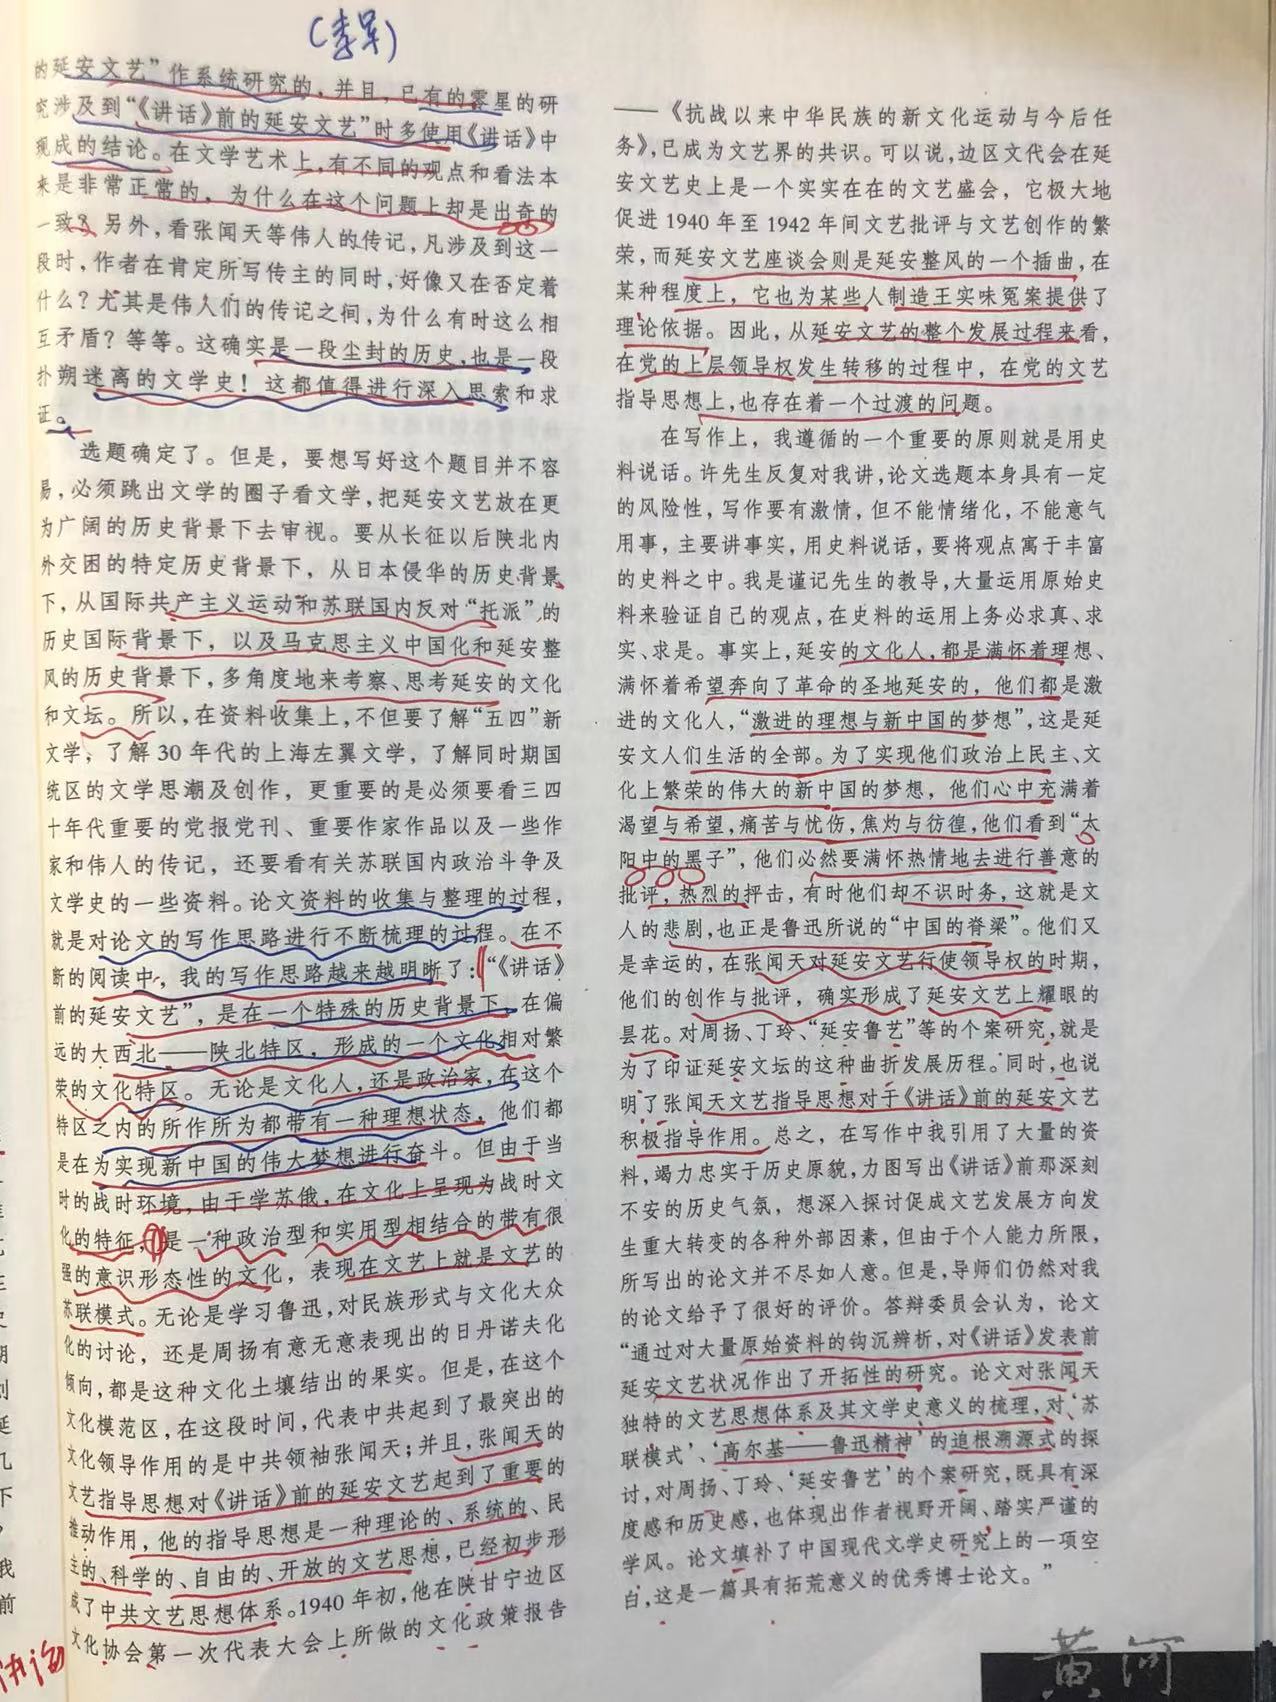 (李军)
的延安文艺”作系统研究的，并且，已有的零星的研
究涉及到“《讲话》前的延安文艺”时多使用《讲话》中
现成的结论。在文学艺术上，有不同的观点和看法本
来是非常正常的，为什么在这个问题上却是出奇的
一致？另外，看张闻天等伟人的传记，凡涉及到这一
段时，作者在肯定所写传主的同时，好像又在否定着
什么？尤其是伟人们的传记之间，为什么有时这么相
互矛盾？等等。这确实是一段尘封的历史，也是一段
扑朔迷离的文学史！这都值得进行深入思索和求
证。
选题确定了。但是，要想写好这个题目并不容
易，必须跳出文学的圈子看文学，把延安文艺放在更
为广阔的历史背景下去审视。要从长征以后陕北内
外交困的特定历史背景下，从日本侵华的历史背景
下，从国际共产主义运动和苏联国内反对“托派”的
历史国际背景下，以及马克思主义中国化和延安整
风的历史背景下，多角度地来考察、思考延安的文化
和文坛。所以，在资料收集上，不但要了解“五四”新
文学，了解30年代的上海左翼文学，了解同时期国
统区的文学思潮及创作，更重要的是必须要看三四
十年代重要的党报党刊、重要作家作品以及一些作
家和伟人的传记，还要看有关苏联国内政治斗争及
文学史的一些资料。论文资料的收集与整理的过程，
就是对论文的写作思路进行不断梳理的过程。在不
断的阅读中，我的写作思路越来越明晰了：“《讲话》
前的延安文艺”，是在一个特殊的历史背景下，在偏
远的大西北——陕北特区，形成的一个文化相对繁
荣的文化特区。无论是文化人，还是政治家，在这个
特区之内的所作所为都带有一种理想状态，他们都
是在为实现新中国的伟大梦想进行奋斗。但由于当
时的战时环境，由于学苏俄，在文化上呈现为战时文
化的特征，①是一种政治型和实用型相结合的带有很
强的意识形态性的文化，表现在文艺上就是文艺的
苏联模式。无论是学习鲁迅，对民族形式与文化大众
化的讨论，还是周扬有意无意表现出的日丹诺夫化
倾向，都是这种文化土壤结出的果实。但是，在这个
文化模范区，在这段时间，代表中共起到了最突出的
文化领导作用的是中共领袖张闻天；并且，张闻天的
文艺指导思想对《讲话》前的延安文艺起到了重要的
推动作用，他的指导思想是一种理论的、系统的、民
主的、科学的、自由的、开放的文艺思想，已经初步形
成了中共文艺思想体系。1940年初，他在陕甘宁边区
文化协会第一次代表大会上所做的文化政策报告
——《抗战以来中华民族的新文化运动与今后任
务》，已成为文艺界的共识。可以说，边区文代会在延
安文艺史上是一个实实在在的文艺盛会，它极大地
促进1940年至1942年间文艺批评与文艺创作的繁
荣，而延安文艺座谈会则是延安整风的一个插曲，在
某种程度上，它也为某些人制造王实味冤案提供了
理论依据。因此，从延安文艺的整个发展过程来看，
在党的上层领导权发生转移的过程中，在党的文艺
指导思想上，也存在着一个过渡的问题。
在写作上，我遵循的一个重要的原则就是用史
料说话。许先生反复对我讲，论文选题本身具有一定
的风险性，写作要有激情，但不能情绪化，不能意气
用事，主要讲事实，用史料说话，要将观点寓于丰富
的史料之中。我是谨记先生的教导，大量运用原始史
料来验证自己的观点，在史料的运用上务必求真、求
实、求是。事实上，延安的文化人，都是满怀着理想、
满怀着希望奔向了革命的圣地延安的，他们都是激
进的文化人，“激进的理想与新中国的梦想”，这是延
安文人们生活的全部。为了实现他们政治上民主、文
化上繁荣的伟大的新中国的梦想，他们心中充满着
渴望与希望，痛苦与忧伤，焦灼与彷徨，他们看到“太
阳中的黑子”，他们必然要满怀热情地去进行善意的
批评，热烈的抨击，有时他们却不识时务，这就是文
人的悲剧，也正是鲁迅所说的“中国的脊梁”。他们又
是幸运的，在张闻天对延安文艺行使领导权的时期，
他们的创作与批评，确实形成了延安文艺上耀眼的
昙花。对周扬、丁玲、“延安鲁艺”等的个案研究，就是
为了印证延安文坛的这种曲折发展历程。同时，也说
明了张闻天文艺指导思想对于《讲话》前的延安文艺
积极指导作用。总之，在写作中我引用了大量的资
料，竭力忠实于历史原貌，力图写出《讲话》前那深刻
不安的历史气氛，想深入探讨促成文艺发展方向发
生重大转变的各种外部因素，但由于个人能力所限，
所写出的论文并不尽如人意。但是，导师们仍然对我
的论文给予了很好的评价。答辩委员会认为，论文
“通过对大量原始资料的钩沉辨析，对《讲话》发表前
延安文艺状况作出了开拓性的研究。论文对张闻天
独特的文艺思想体系及其文学史意义的梳理，对‘苏
联模式’、‘高尔基——鲁迅精神’的追根溯源式的探
讨，对周扬、丁玲、‘延安鲁艺’的个案研究，既具有深
度感和历史感，也体现出作者视野开阔、踏实严谨的
学风。论文填补了中国现代文学史研究上的一项空
白，这是一篇具有拓荒意义的优秀博士论文。”
黄河